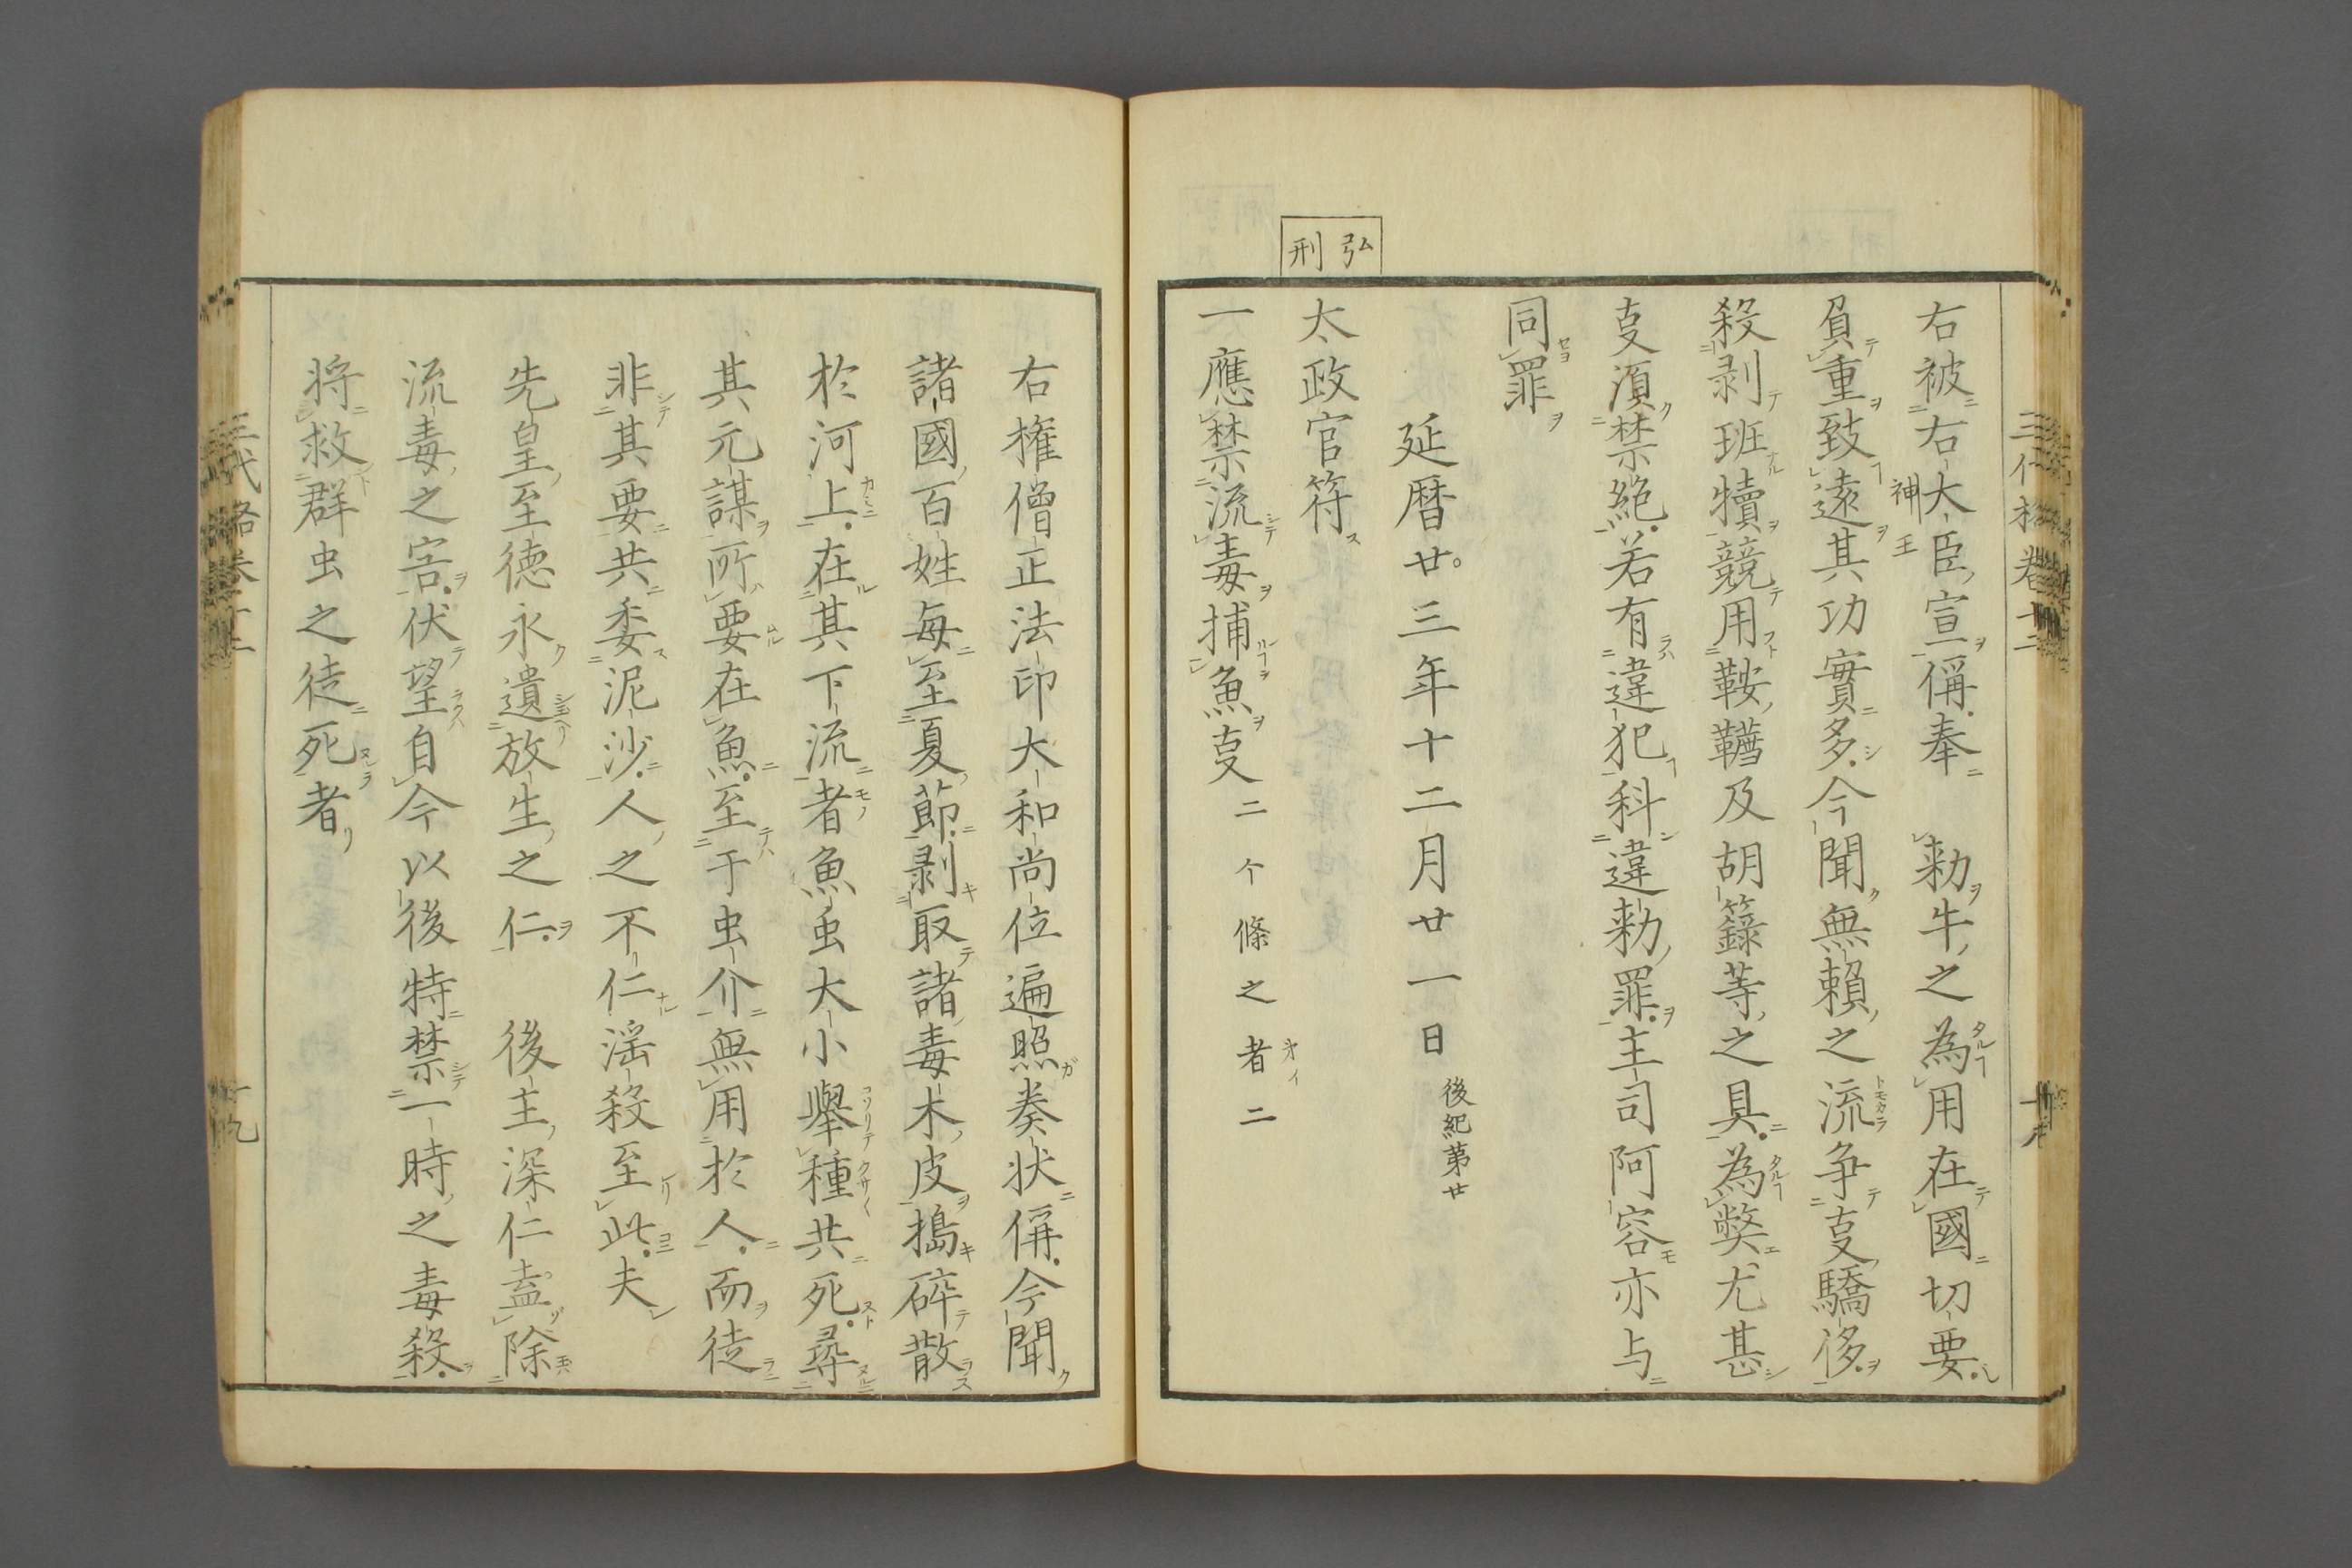 弘刑
右被右大臣宣偁奉　勅牛之為用在國切要
神王
負重致遠其功實多今聞無賴之流争叓驕侈
殺剥班犢競用鞍韉及胡籙等之具為弊尤甚
叓湏禁絶若有違犯科違勅罪主司阿容亦与
同罪
延暦廿三年十二月廿一日
後紀第廿
太政官符
一應禁流毒捕魚叓二个條之者二
右権僧正法印大和尚位遍照奏状偁今聞
諸國百姓毎至夏節剥取諸毒木皮搗碎散
於河上在其下流者魚虫大小擧種共死尋
其元謀所要在魚至于虫介無用於人而徒
非其要共委泥沙人之不仁淫殺至此夫
先皇至徳永遺放生之仁　後主深仁盍除
流毒之害伏望自今以後特禁一時之毒殺
将救群虫之徒死者
三代格巻十二
十九